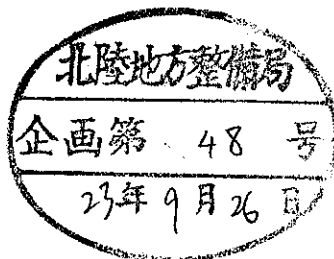 北陸地方整備局
企画第 48 号
23年9月26日